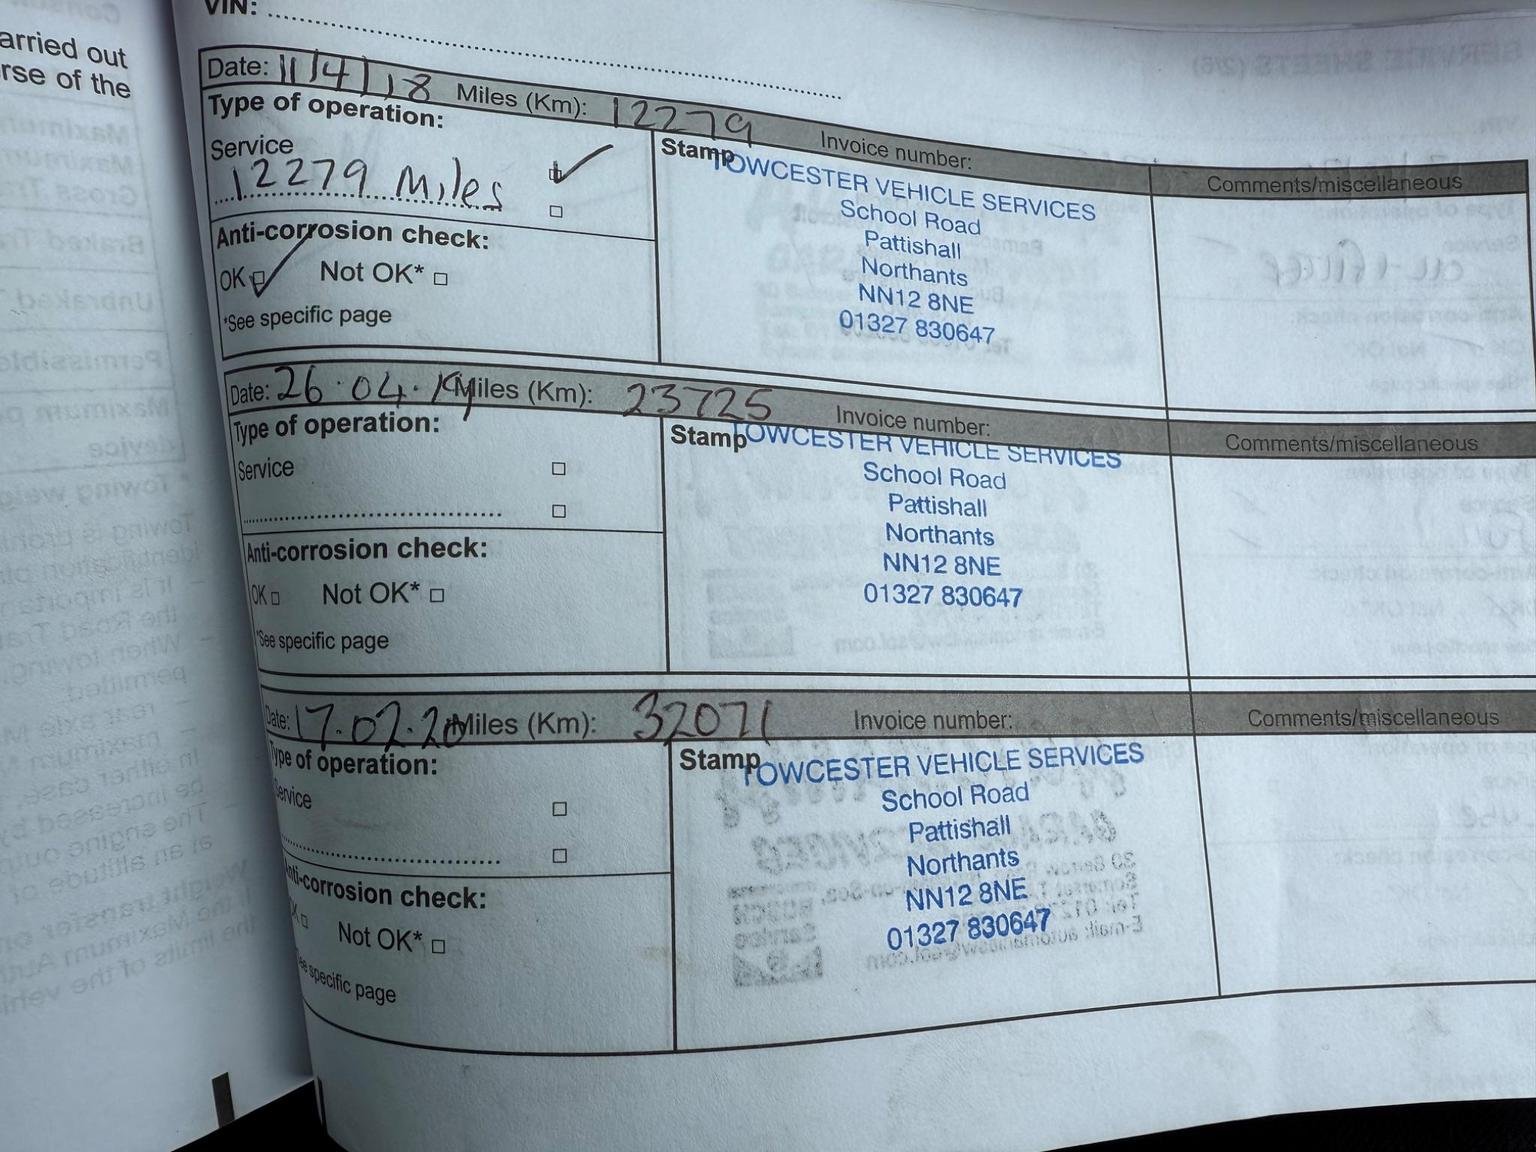 arried out
rse of the
VIN:
Date: 11/4/18 Miles (Km): 12279 Invoice number:
Type of operation:
Service
12279 Miles
Anti-corrosion check:
OK Not OK*
*See specific page
Stamp
TOWCESTER VEHICLE SERVICES
School Road
Pattishall
Northants
NN12 8NE
01327 830647
Comments/miscellaneous
Date: 26.04.19 Miles (Km): 23725 Invoice number:
Type of operation:
Service
Anti-corrosion check:
OK Not OK*
*See specific page
Stamp
TOWCESTER VEHICLE SERVICES
School Road
Pattishall
Northants
NN12 8NE
01327 830647
Comments/miscellaneous
Date: 17.02.20 Miles (Km): 32071 Invoice number:
Type of operation:
Service
Anti-corrosion check:
OK Not OK*
See specific page
Stamp
TOWCESTER VEHICLE SERVICES
School Road
Pattishall
Northants
NN12 8NE
01327 830647
Comments/miscellaneous